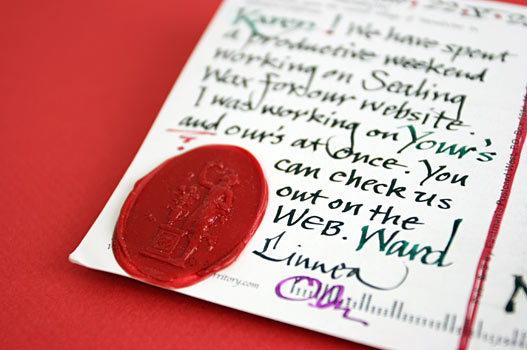 Karen! We have spent
a productive weekend
working on Sealing
Wax for our website.
I was working on Your's
and our's at once. You
can check us
out on the
WEB. Ward
Linnea
ritory.com